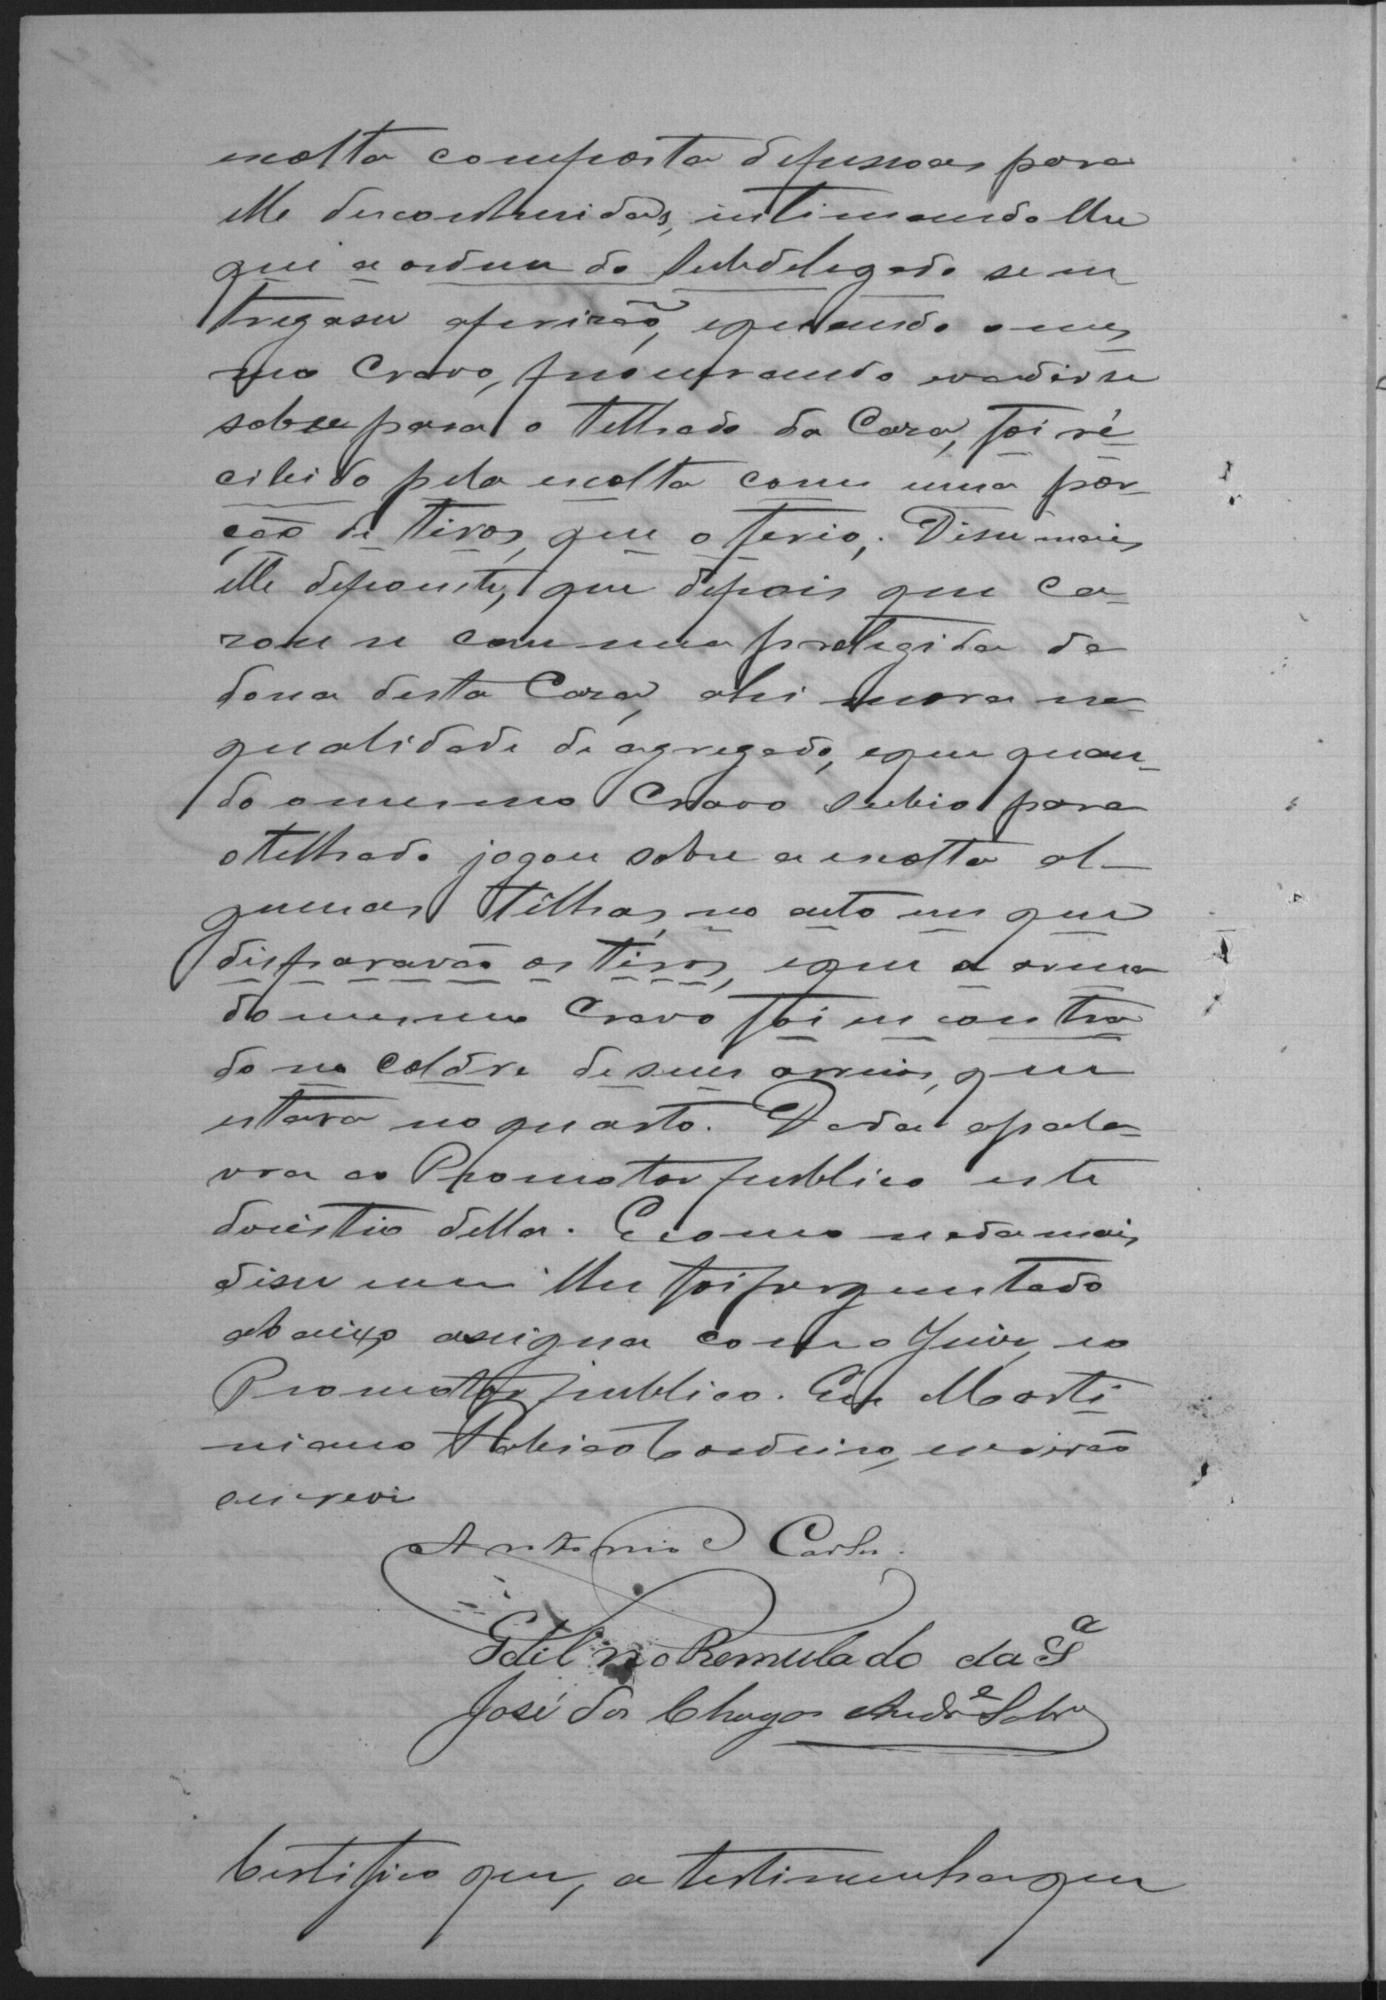 escolta composta de pessoas para
elle desconhecidas, intimando lhe
que a ordem do Subdelegado se en
tregasse a prizão, e quando o mes
mo Cravo, procurando evadir se
sobre para o telhado da Caza, foi re
cibido pela escolta com uma por
ção de tiros, que o ferio. Disse mais
elle depoente, que depois que ca
zou se com uma protegida da
dona desta Caza, ahi mora na
qualidade de agregado, e que quan
do o mesmo Cravo subio para
o telhado jogou sobre a escolta al
gumas têlhas, no acto em que
disparavão os tiros, e que a arma
do mesmo Cravo foi incontra
do no coldre de seus arreios, que
estava no quarto. Dada a pala
vra ao Promotor publico este
desistio della. E como nada mais
disse nem lhe foi perguntado
abaixo assigna com o Juiz, e o
Promotor publico. Eu Marti
niano Cordeiro, escrivão
escrevi
Antonio Carlos.
Edelino Remulado da Sª
José das Chagas Andᵉ Sobrº
Certifico que, a testimunha que